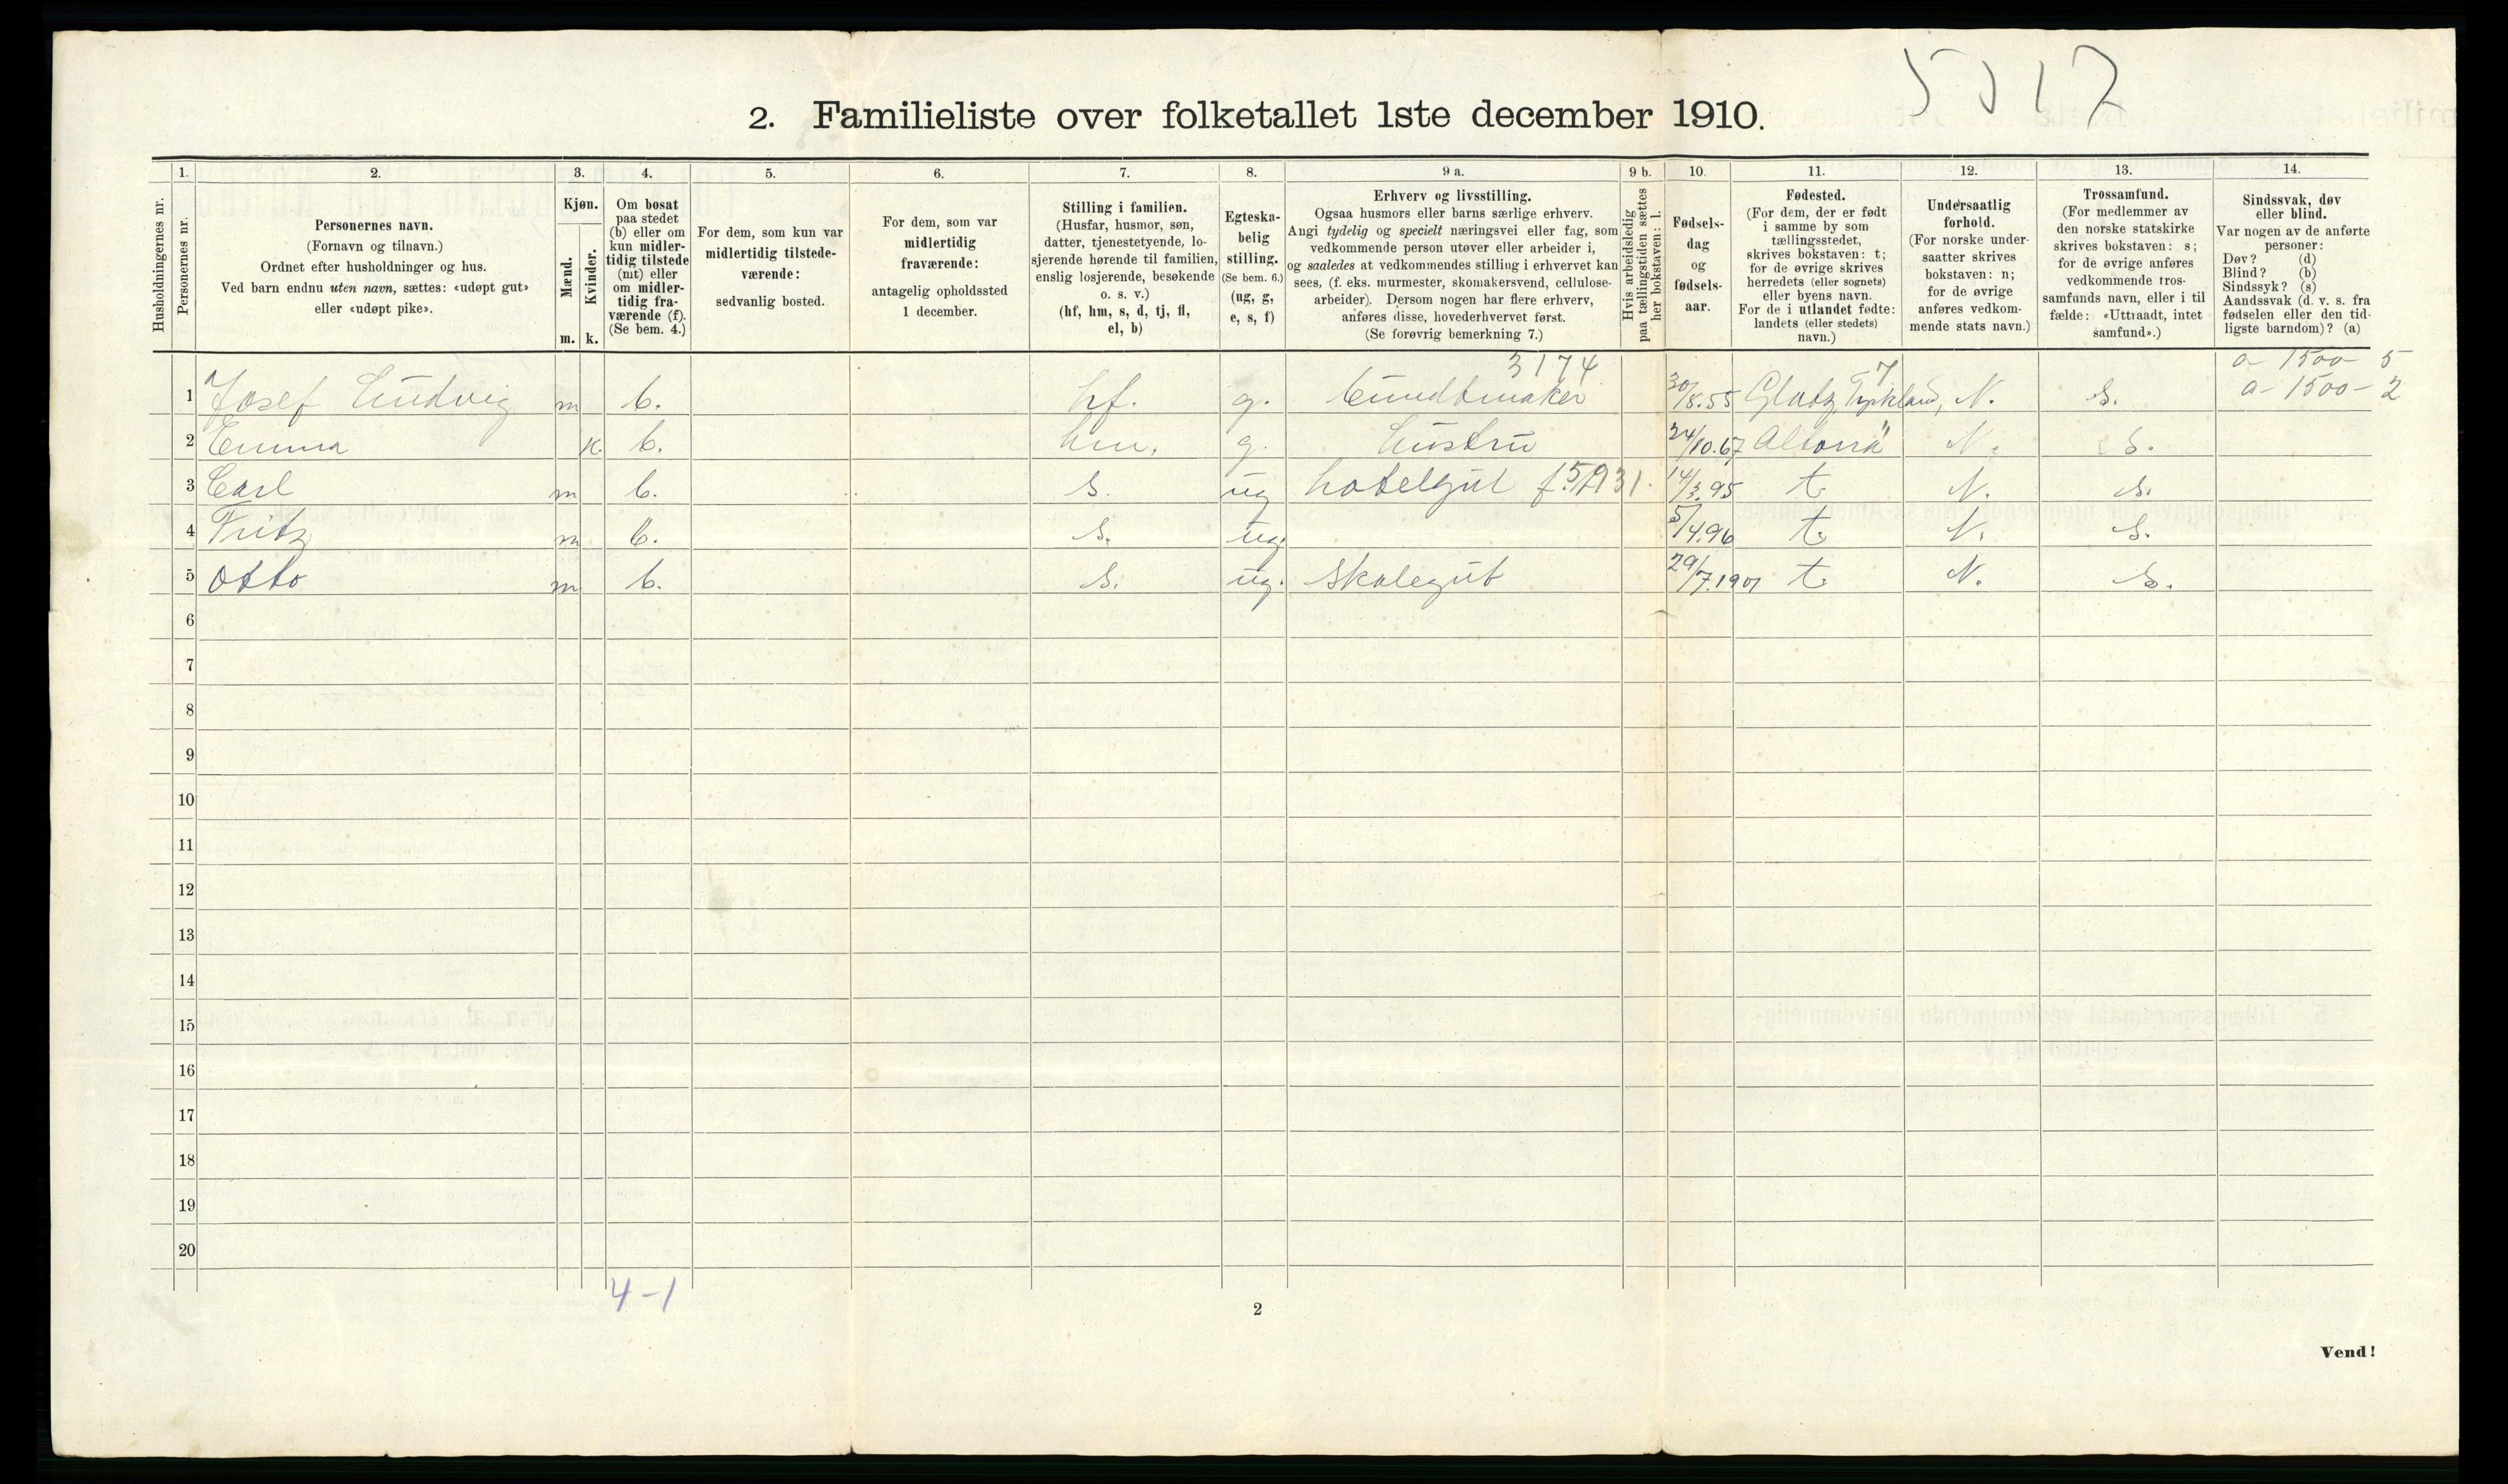 5517
2. Familieliste over folketallet 1ste december 1910.
Husholdningernes nr.
1.
Personernes nr.
2.
Personernes navn.
(Fornavn og tilnavn.)
Ordnet efter husholdninger og hus.
Ved barn endnu uten navn, sættes: «udøpt gut»
eller «udøpt pike».
3.
Kjøn.
Mænd.
Kvinder.
m. k.
4.
Om bosat
paa stedet
(b) eller om
kun midler-
tidig tilstede
(mt) eller
om midler-
tidig fra-
værende (f).
(Se bem. 4.)
5.
For dem, som kun var
midlertidig tilstede-
værende:
sedvanlig bosted.
6.
For dem, som var
midlertidig
fraværende:
antagelig opholdssted
1 december.
7.
Stilling i familien.
(Husfar, husmor, søn,
datter, tjenestetyende, lo-
sjerende hørende til familien,
enslig losjerende, besøkende
o. s. v.)
(hf, hm, s, d, tj, fl,
el, b)
8.
Egteska-
belig
stilling.
(Se bem. 6.)
(ug, g,
e, s, f)
9 a.
Erhverv og livsstilling.
Ogsaa husmors eller barns særlige erhverv.
Angi tydelig og specielt næringsvei eller fag, som
vedkommende person utøver eller arbeider i,
og saaledes at vedkommendes stilling i erhvervet kan
sees, (f. eks. murmester, skomakersvend, cellulose-
arbeider). Dersom nogen har flere erhverv,
anføres disse, hovederhvervet først.
(Se forøvrig bemerkning 7.)
9 b.
Hvis arbeidsledig
paa tællingstiden sættes
her bokstaven: l.
10.
Fødsels-
dag
og
fødsels-
aar.
11.
Fødested.
(For dem, der er født
i samme by som
tællingsstedet,
skrives bokstaven: t;
for de øvrige skrives
herredets (eller sognets)
eller byens navn.
For de i utlandet fødte:
landets (eller stedets)
navn.)
12.
Undersaatlig
forhold.
(For norske under-
saatter skrives
bokstaven: n;
for de øvrige
anføres vedkom-
mende stats navn.)
13.
Trossamfund.
(For medlemmer av
den norske statskirke
skrives bokstaven: s;
for de øvrige anføres
vedkommende tros-
samfunds navn, eller i til
fælde: «Uttraadt, intet
samfund».)
14.
Sindssvak, døv
eller blind.
Var nogen av de anførte
personer:
Døv? (d)
Blind? (b)
Sindssyk? (s)
Aandssvak (d. v. s. fra
fødselen eller den tid-
ligste barndom)? (a)
3174 7 a- 1500- 5
1 Josef Ludvig m b. hf. g. Bundtmaker 30/8.55 Glatz, Tyskland, N. s. a- 1500- 2
2 Emma k. b. hm. g. hustru 24/10.67 Altona " N. s.
3 Carl m b. s. ug hotelgut f 5/7931. 14/3.95 t. N. s.
4 Fritz m b. s. ug. 5/4.96 t. N. s.
5 Otto m b. s. ug. Skolegut 29/7.1901 t. N. s.
6
7
8
9
10
11
12
13
14
15
16
17
18
19
20
4-1
2
Vend!